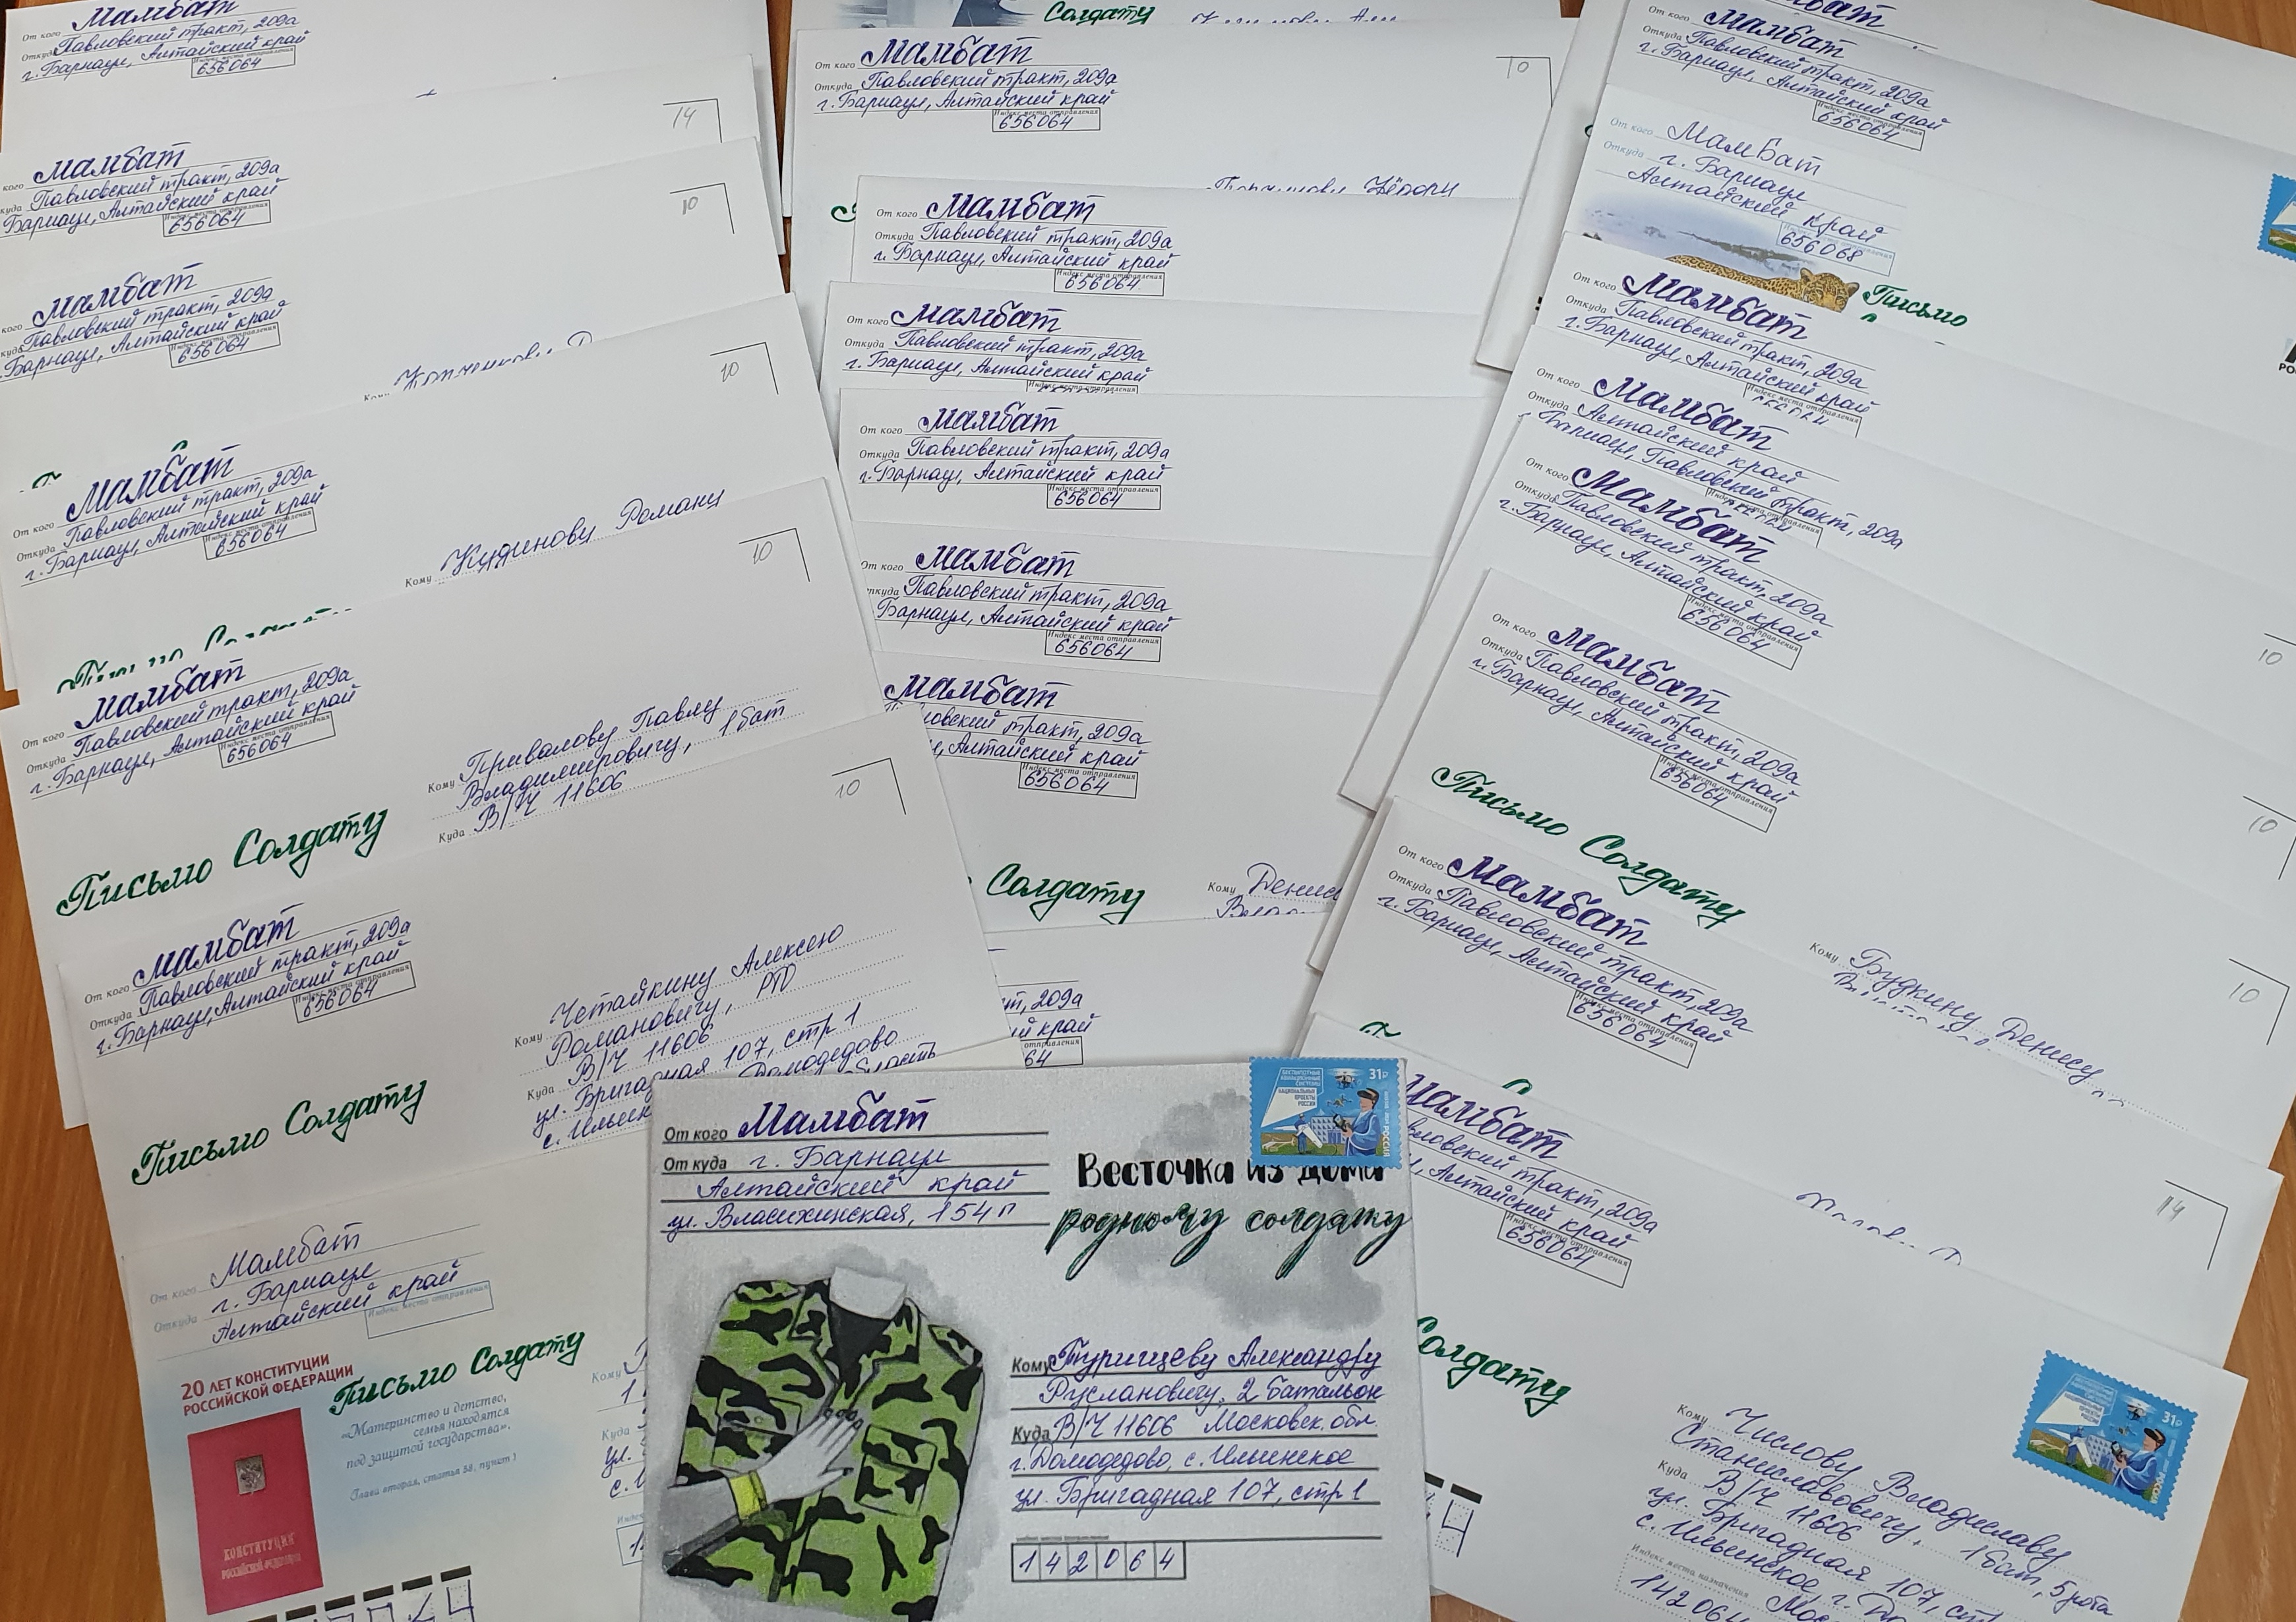 Мамбат
От кого
Откуда Павловский тракт, 209а
г. Барнаул, Алтайский край
656064
14
Мамбат
кого
куда Павловский тракт, 209а
Барнаул, Алтайский край
Индекс места отправления
656064
10
Мамбат
кого
куда Павловский тракт, 209а
Барнаул, Алтайский край
656064
10
От кого Мамбат
Откуда Павловский тракт, 209а
г. Барнаул, Алтайский край
Индекс места отправления
656064
Кому Кудинову Роману
10
От кого Мамбат
Откуда Павловский тракт, 209а
г. Барнаул, Алтайский край
Индекс места отправления
656064
Кому Привалову Павлу
Владимировичу, 1 бат
Куда В/Ч 11606
Письмо Солдату
10
От кого Мамбат
Откуда Павловский тракт, 209а
г. Барнаул, Алтайский край
Индекс места отправления
656064
Кому Четайкину Алексею
Романовичу,
Куда В/Ч 11606
ул. Бригадная 107, стр 1
Домодедово
Письмо Солдату
От кого Мамбат
Откуда г. Барнаул
Алтайский край
Индекс места отправления
20 ЛЕТ КОНСТИТУЦИИ
РОССИЙСКОЙ ФЕДЕРАЦИИ
Письмо Солдату
«Материнство и детство,
семья находятся
под защитой государства».
Глава вторая, статья 38, пункт 1
КОНСТИТУЦИЯ
РОССИЙСКОЙ ФЕДЕРАЦИИ
Кому
Куда
Солдату
От кого Мамбат
Откуда Павловский тракт, 209а
г. Барнаул, Алтайский край
Индекс места отправления
656064
10
От кого Мамбат
Откуда Павловский тракт, 209а
г. Барнаул, Алтайский край
Индекс места отправления
656064
От кого Мамбат
Откуда Павловский тракт, 209а
г. Барнаул, Алтайский край
От кого Мамбат
Откуда Павловский тракт, 209а
г. Барнаул, Алтайский край
Индекс места отправления
656064
От кого Мамбат
Павловский тракт, 209а
Барнаул, Алтайский край
Индекс места отправления
656064
Мамбат
тракт, 209а
Алтайский край
Индекс места отправления
656064
Солдату
Кому
209а
край
отправления
64
От кого Мамбат
От куда г. Барнаул
Алтайский край
ул. Власихинская, 154п
31р
БЕСПИЛОТНЫЕ
АВИАЦИОННЫЕ
СИСТЕМЫ
НАЦИОНАЛЬНЫЕ
ПРОЕКТЫ
РОССИИ
РОССИЯ
Весточка из дома
родному солдату
Кому Туринцеву Александру
Руслановичу, 2 батальон
Куда В/Ч 11606 Московск. обл.
г. Домодедово, с. Ильинское
ул. Бригадная 107, стр 1
142064
От кого Мамбат
Откуда Павловский тракт, 209а
г. Барнаул, Алтайский край
Индекс места отправления
656064
От кого МамБат
Откуда г. Барнаул
Алтайский край
656068
Письмо
От кого Мамбат
Откуда Павловский тракт, 209а
г. Барнаул, Алтайский край
От кого Мамбат
Откуда Алтайский край
Барнаул, Павловский тракт, 209а
От кого Мамбат
Откуда Павловский тракт, 209а
г. Барнаул, Алтайский край
Индекс места отправления
656064
10
От кого Мамбат
Откуда Павловский тракт, 209а
г. Барнаул, Алтайский край
Индекс места отправления
656064
Письмо Солдату
10
Кому Будкину Денису
От кого Мамбат
Откуда Павловский тракт, 209а
г. Барнаул, Алтайский край
Индекс места отправления
656064
10
Мамбат
тракт, 209а
Алтайский край
Индекс места отправления
656064
14
Солдату
31р
Кому Числову Владиславу
Станиславовичу, 1 бат, 5 рота
Куда В/Ч 11606
ул. Бригадная 107,
с. Ильинское, г.
Индекс места назначения
142064